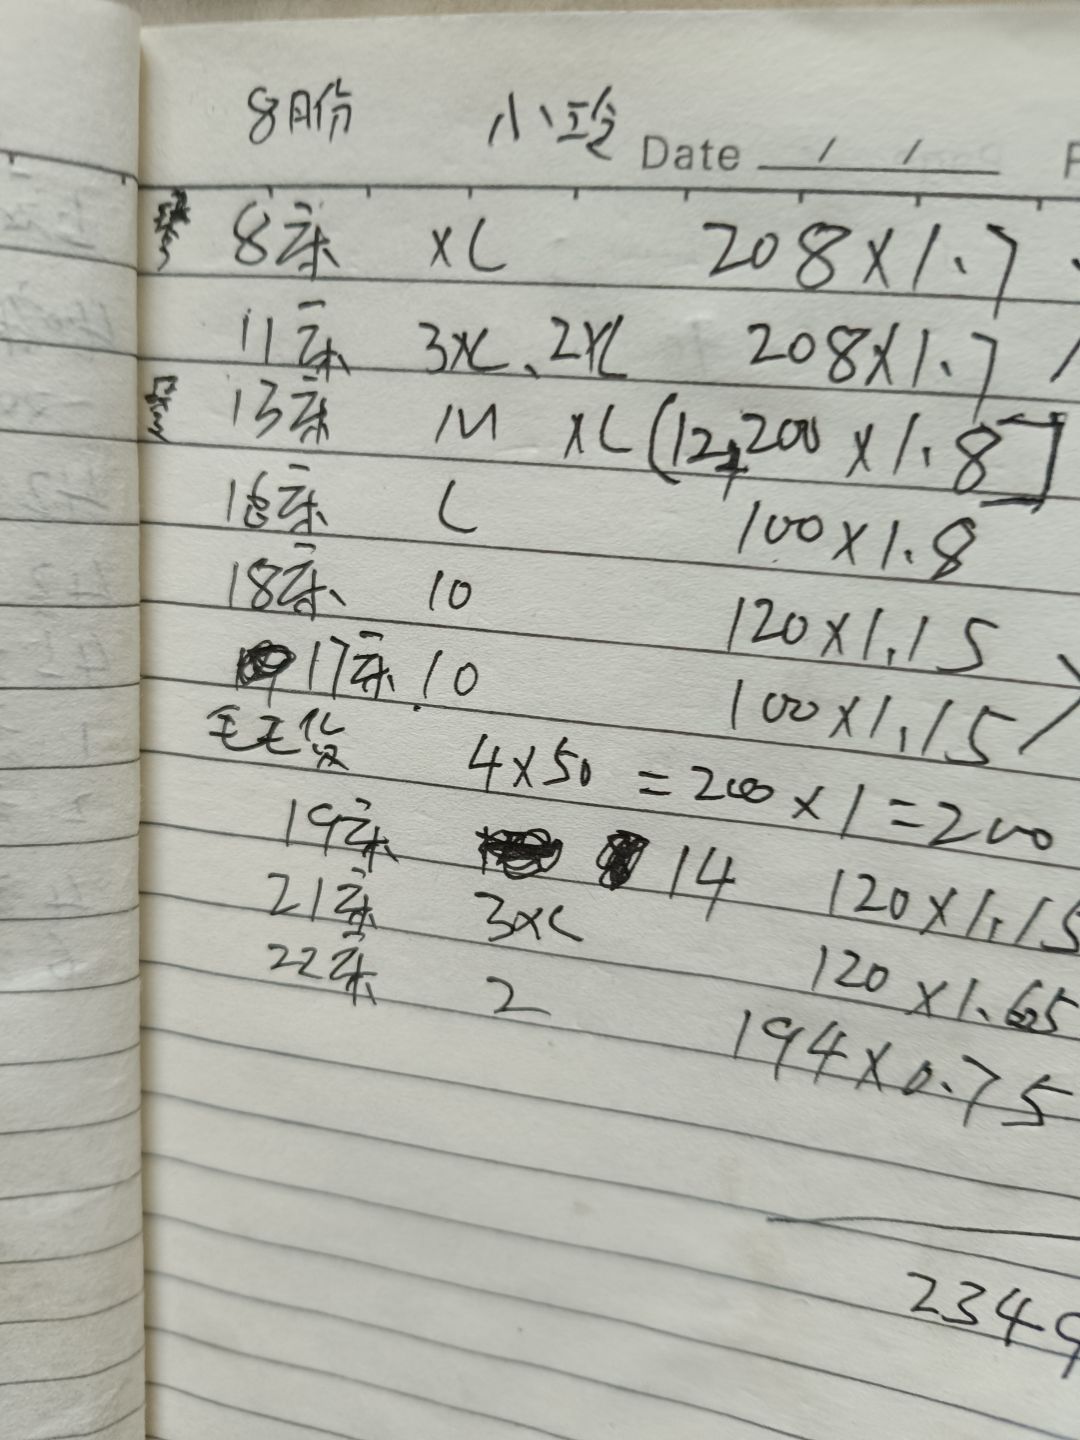 8月份 小玲 Date / /
8床 XL 208×1.7
11床 3XL、2XL 208×1.7
13床 M XL (12, 200×1.8]
16床 L 100×1.8
18床、 10 120×1.15
17床、10 100×1.15
毛毛货 4×50=200×1=200
19床、 14 120×1.15
21床 3XL 120×1.65
22床、 2 194×0.75
2349